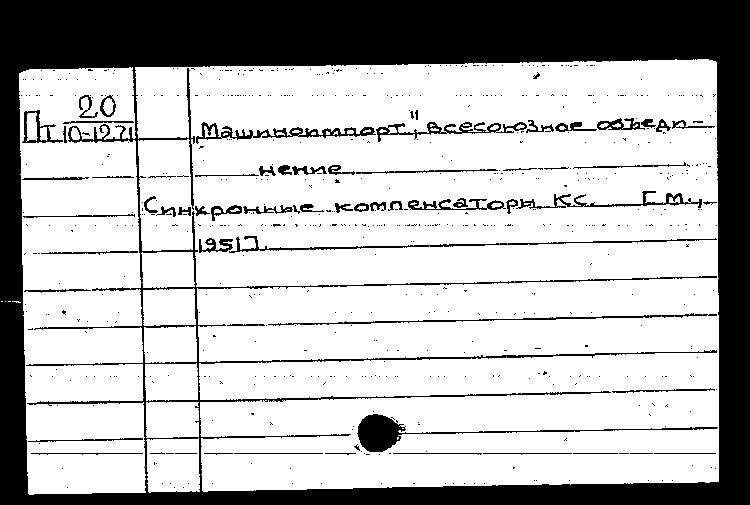 Пт 20
10-1271
„Машиноимпорт", Всесоюзное объеди-
нение
Синхронные компенсаторы КС. [М.,
1951].